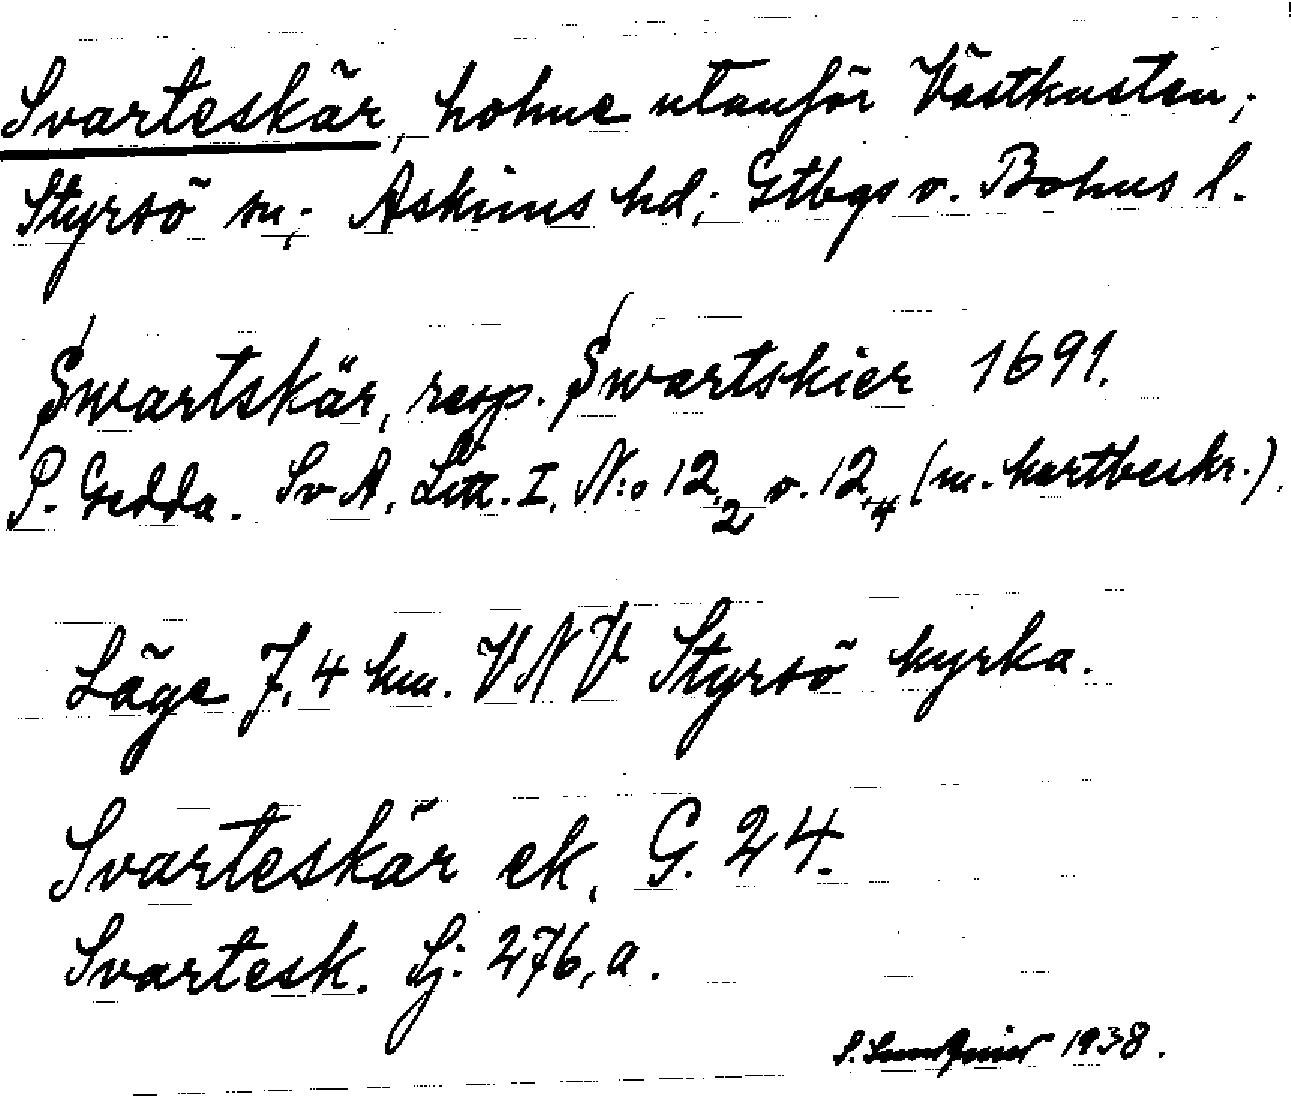 Svarteskär, holme utanför Västkusten;
Styrsö sn; Askims hd; Gtbgs o. Bohus l.
Swartskär, resp. Swartskier 1691.
P. Gedda. SvA, Litt. I. N:o 12,2 o. 12,4 (m. kartbeskr.).
Läge 7,4 km. VNV Styrsö kyrka.
Svarteskär ek, G. 24.
Svartesk. Sj: 276,a.
S. 1938.